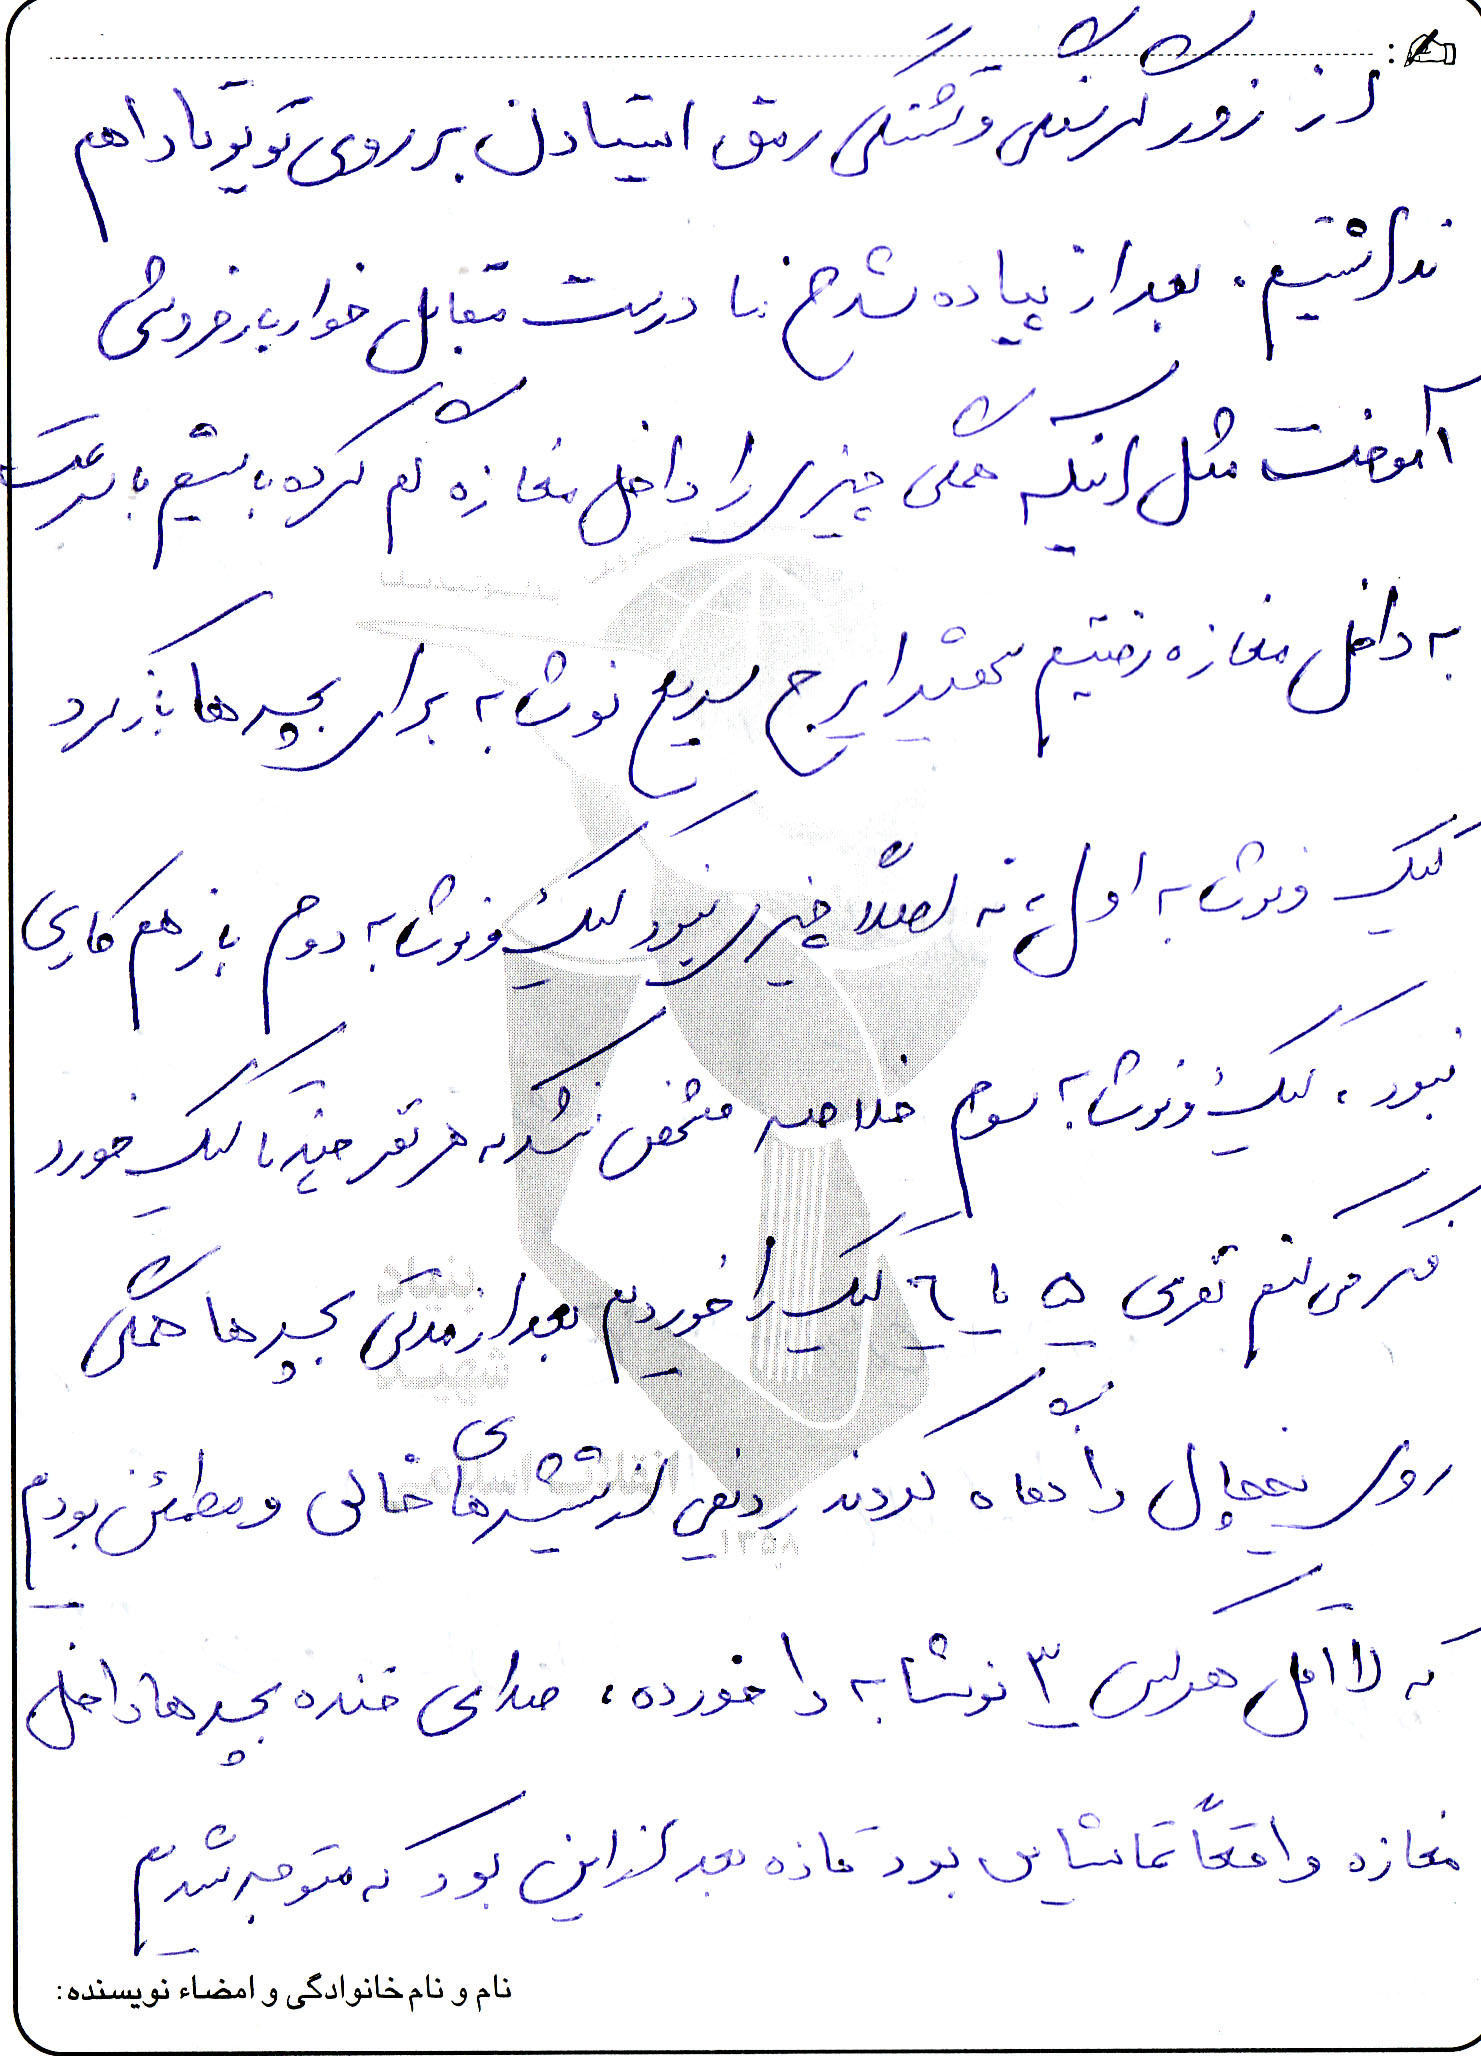 از زور گرسنگی و تشنگی رمق ایستادن بر روی تویوتا را هم
نداشتیم. بعد از پیاده شدن ما درست مقابل خواربار فروشی
مثل اینکه همگی چیزی را داخل مغازه گم کرده باشیم با سرعت
به داخل مغازه رفتیم شهید ایرج سریع نوشابه برای بچه‌ها باز کرد
کیک و نوشابه اول، نه اصلاً چیزی نبود کیک و نوشابه دوم باز هم کاری
نبود، کیک و نوشابه سوم خلاصه مشخص نشد که هر نفر چند تا کیک خورد
فکر می‌کنم نفری ۵ تا ۶ کیک را خوردیم بعد از مدتی بچه‌ها همگی
روی یخچال را نگاه کردند ردیفی از شیشه‌های خالی و مطمئن بودیم
که لااقل هر کس ۳ نوشابه را خورده، صدای خنده بچه‌ها داخل
مغازه واقعاً تماشایی بود تازه بعد از این بود که متوجه شدیم
نام و نام خانوادگی و امضاء نویسنده:
بنیاد
شهید
انقلاب اسلامی
۱۳۵۸